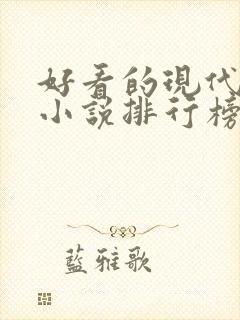 好看的現代
小說排行榜
藍雅歌